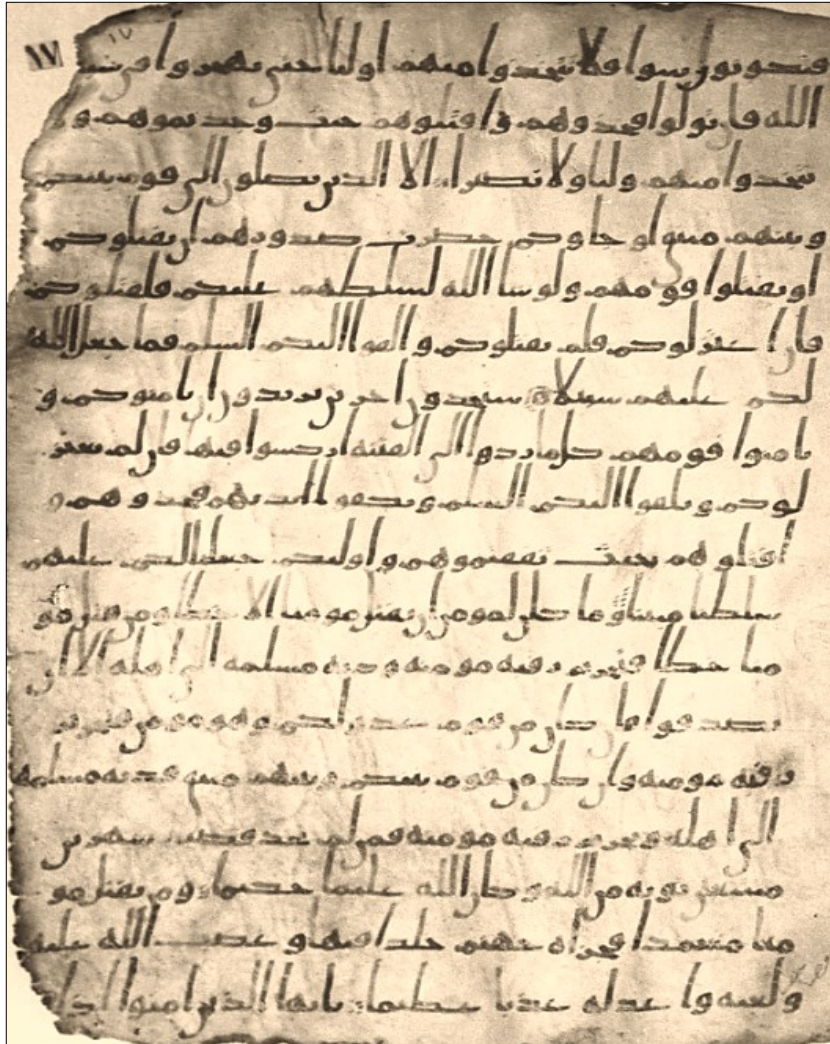 ١٧ ١٧
فتكونون سوا فلا تتخذوا منهم اوليا حتى يهجروا في سبيل
الله فان تولوا فخذوهم واقتلوهم حيث وجدتموهم ولا
تتخذوا منهم وليا ولا نصيرا الا الذين يصلون الى قوم بينكم
وبينهم ميثق او جاوكم حصرت صدورهم ان يقتلوكم
او يقتلوا قومهم ولو شا الله لسلطهم عليكم فلقتلوكم
فان اعتزلوكم فلم يقتلوكم والقوا اليكم السلم فما جعل الله
لكم عليهم سبيلا ستجدون اخرين يريدون ان يامنوكم و
يامنوا قومهم كلما ردوا الى الفتنه اركسوا فيها فان لم يعتز
لوكم ويلقوا اليكم السلم ويكفوا ايديهم فخذوهم و
اقتلوهم حيث ثقفتموهم واوليكم جعلنا لكم عليهم
سلطنا مبينا وما كان لمومن ان يقتل مومنا الا خطا ومن قتل مو
منا خطا فتحرير رقبه مومنه وديه مسلمه الى اهله الا ان
يصدقوا فان كان من قوم عدو لكم وهو مومن فتحرير
رقبه مومنه وان كان من قوم بينكم وبينهم ميثق فديه مسلمه
الى اهله وتحرير رقبه مومنه فمن لم يجد فصيم شهرين
متتبعين توبه من الله وكان الله عليما حكيما ومن يقتل مو
منا متعمدا فجزاه جهنم خلدا فيها وغضب الله عليه
ولعنه واعد له عذبا عظيما يايها الذين امنوا اذا